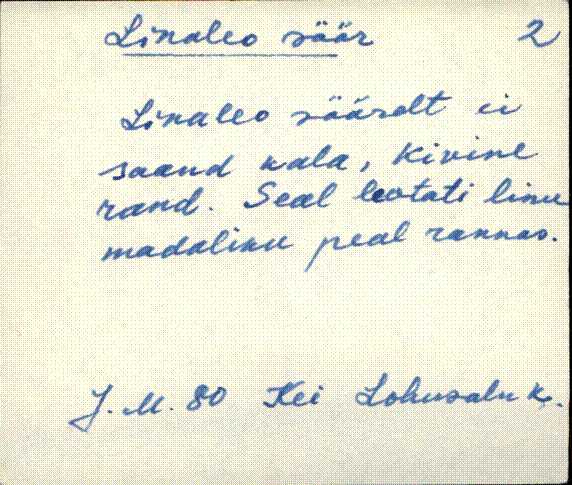 Linaleo säär 2
Linaleo säärelt ei
saand kala, kivine
rand. Seal leotati linu
madaliku peal rannas.
J. M. 80 Kei Lohusalu k.